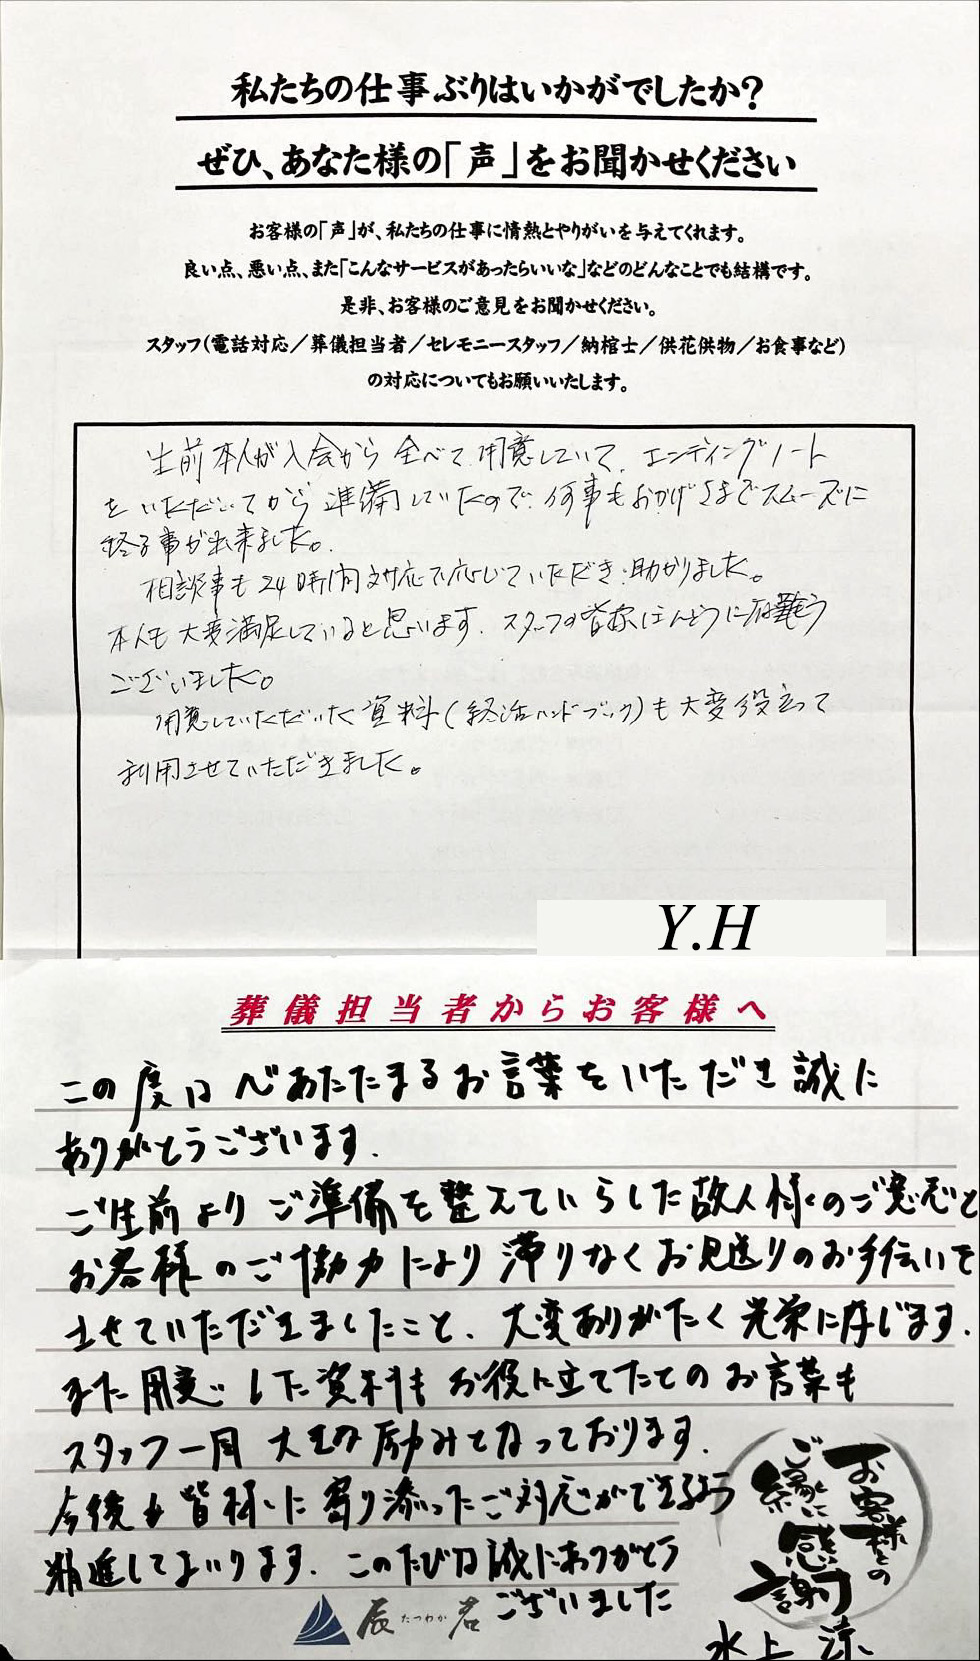 私たちの仕事ぶりはいかがでしたか?
ぜひ、あなた様の「声」をお聞かせください
お客様の「声」が、私たちの仕事に情熱とやりがいを与えてくれます。
良い点、悪い点、また「こんなサービスがあったらいいな」などのどんなことでも結構です。
是非、お客様のご意見をお聞かせください。
スタッフ(電話対応/葬儀担当者/セレモニースタッフ/納棺士/供花供物/お食事など)
の対応についてもお願いいたします。
生前本人が入会から全べて用意していて、エンディングノート
をいただいてから準備していたので、何事もおかげさまでスムーズに
終る事が出来ました。
相談事も24時間対応で応じていただき助かりました。
本人も大変満足していると思います。スタッフの皆様ほんとうに有難う
ございました。
用意していただいた資料(終活ハンドブック)も大変役立って
利用させていただきました。
Y.H
葬儀担当者からお客様へ
この度は心あたたまるお言葉をいただき誠に
ありがとうございます。
ご生前よりご準備を整えていらした故人様のご意志と
お客様のご協力により滞りなくお見送りのお手伝いを
させていただきましたこと、大変ありがたく光栄に存じます。
また用意した資料もお役に立てたとのお言葉も
スタッフ一同大きな励みとなっております。
今後も皆様に寄り添ったご対応ができるよう
精進してまいります。このたびは誠にありがとう
ございました
お客様との
ご縁に
感謝
辰たつわか若
水上 涼